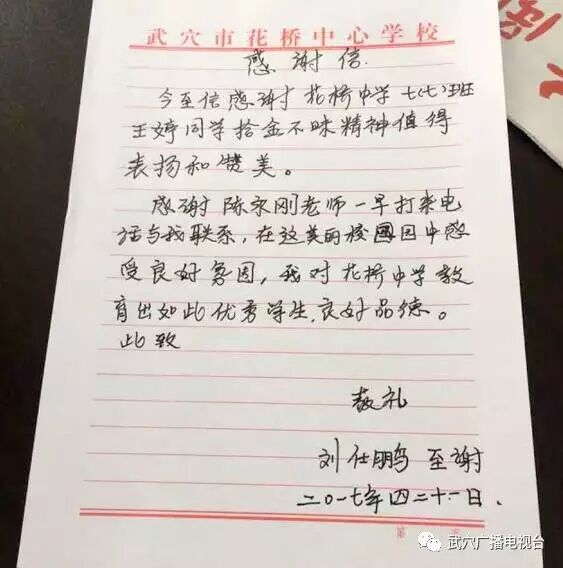 武穴市花桥中心学校
感谢信.
今至信感谢花桥中学七(七)班
王婷同学拾金不昧精神值得
表扬和赞美。
感谢陈永刚老师一早打来电
话与我联系,在这美的校园中感
受良好氛围,我对花桥中学教
育出如此优秀学生,良好品德。
此致
敬礼
刘仕鹏 至谢
二0一七年四二十一日.
第
武穴广播电视台